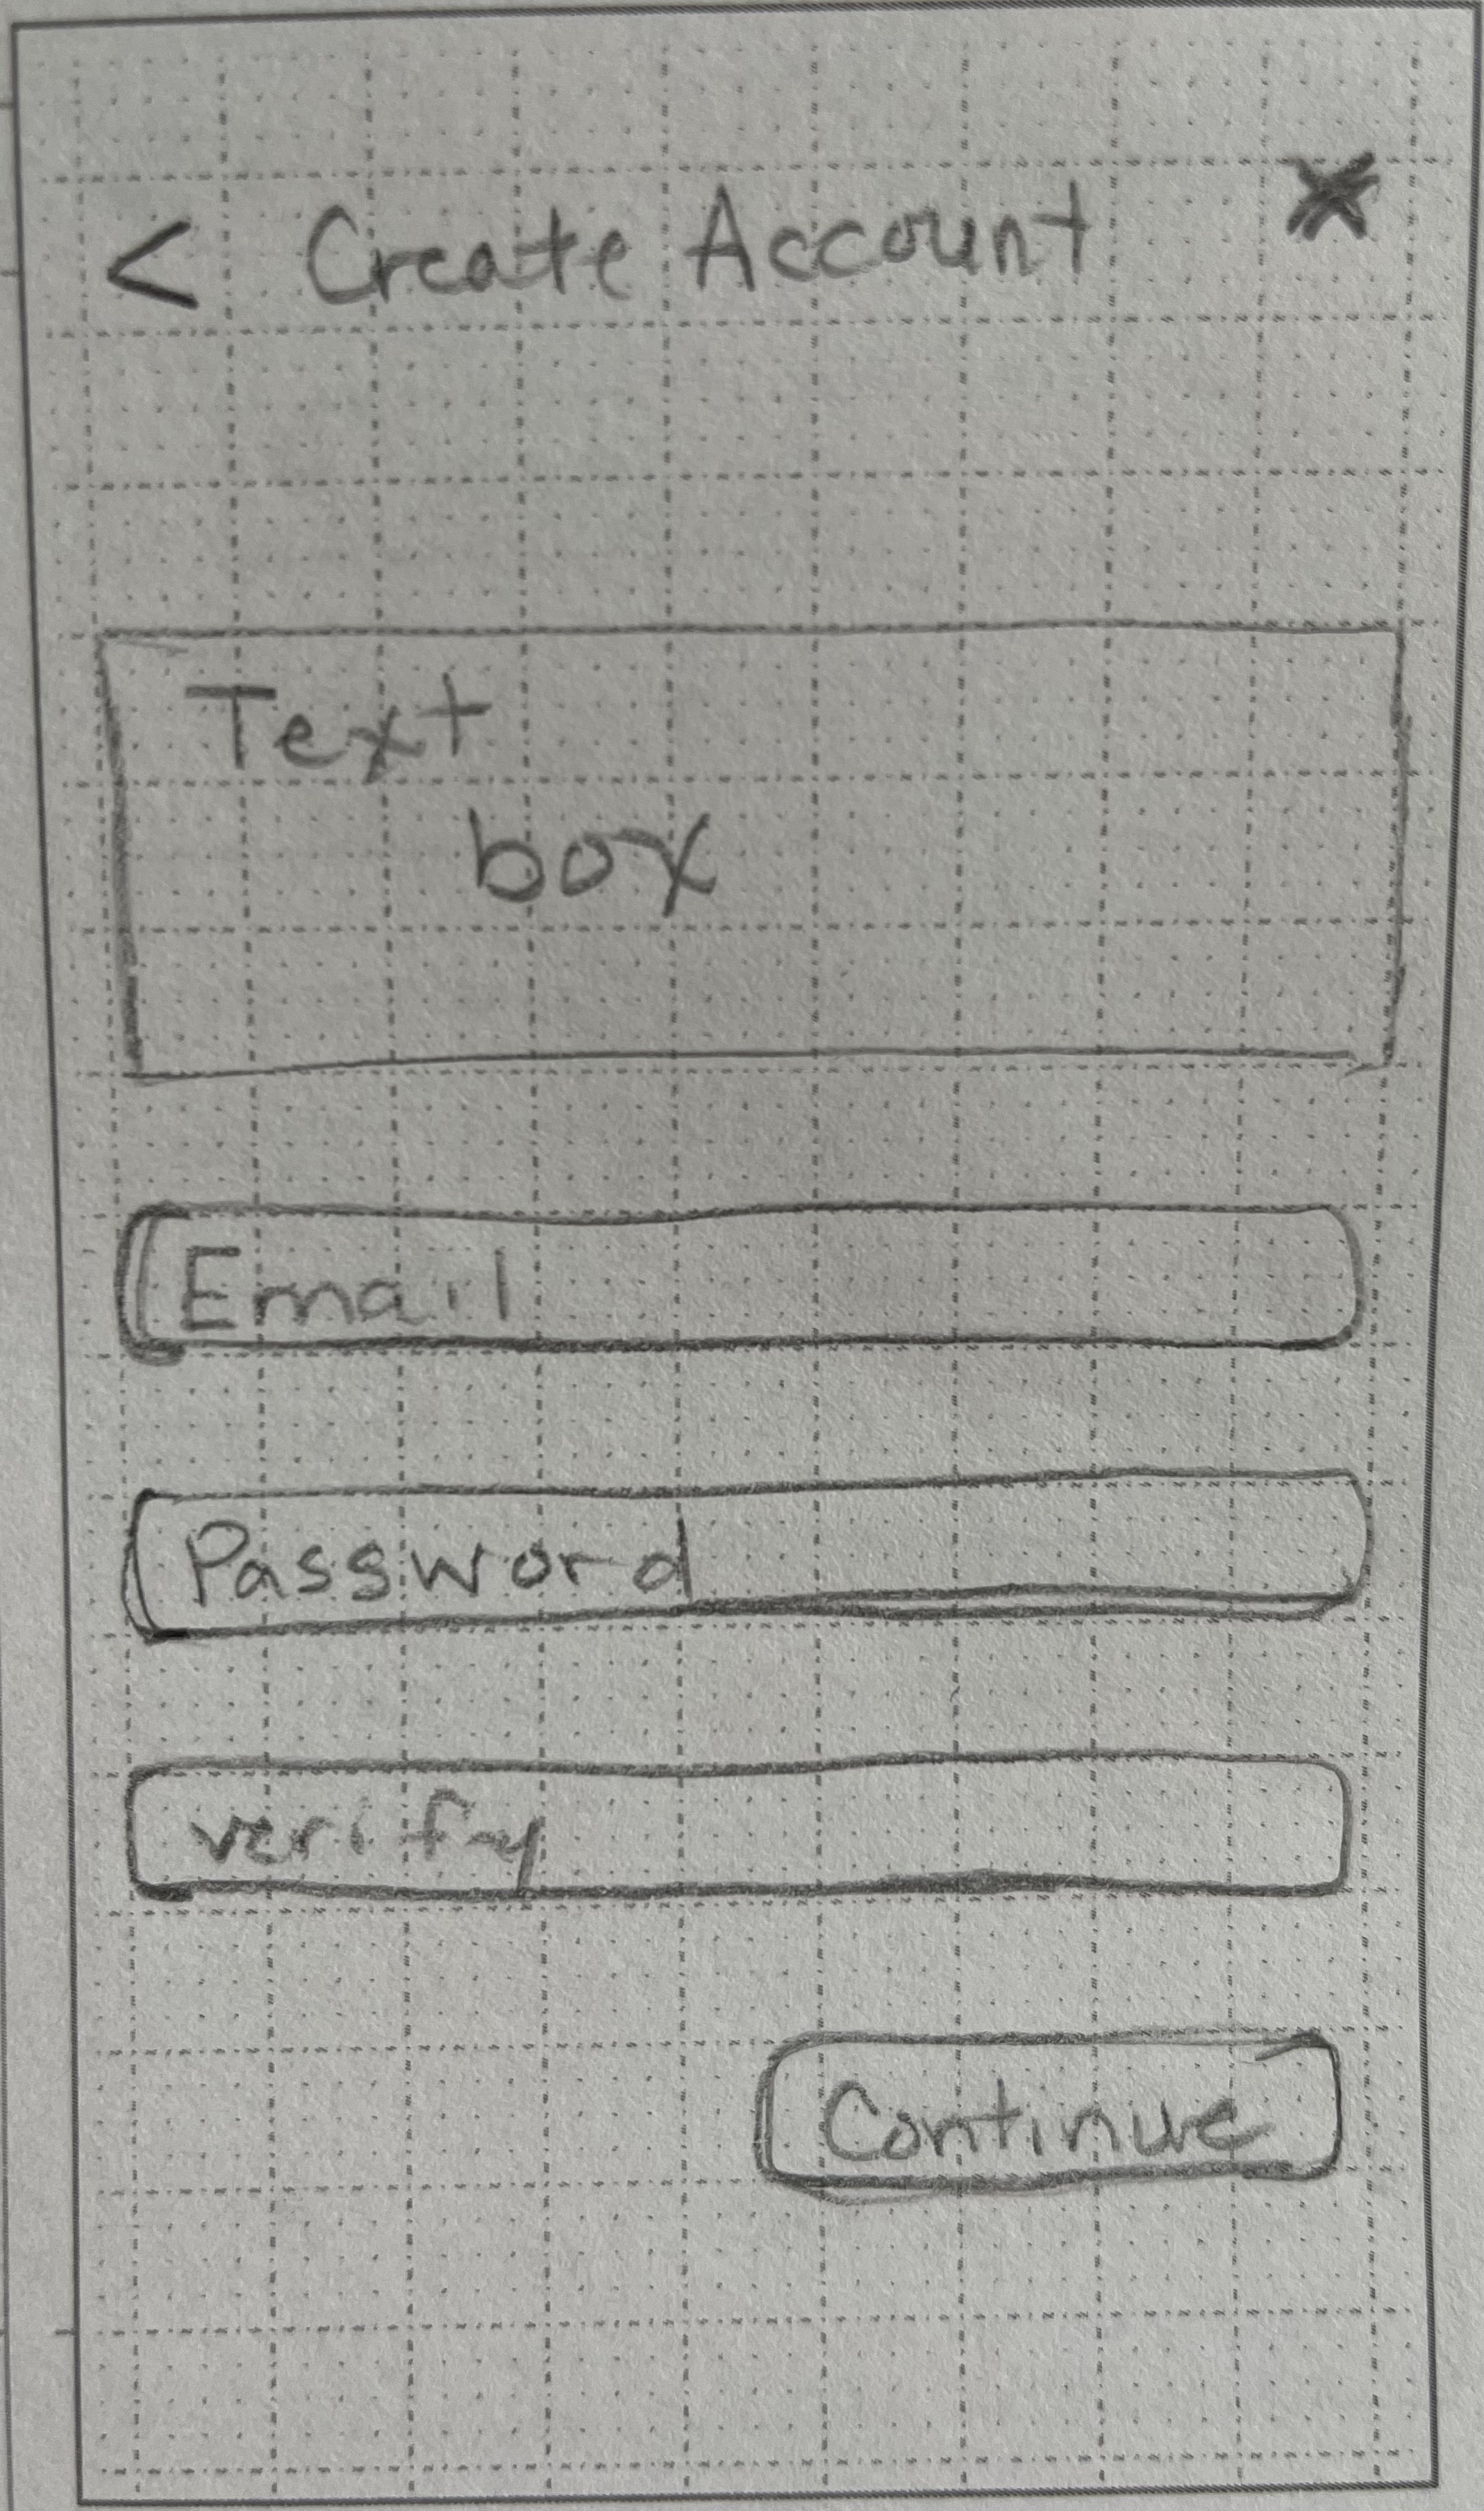 < Create Account X
Text
box
Email
Password
verify
Continue